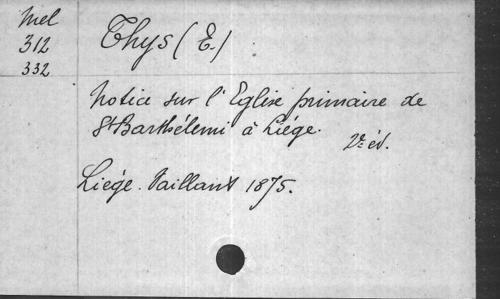 Mel
312
332
Thys (E.)
Notice sur l'Eglise primaire de
St Barthélemi à Liége.
2e éd.
Liége. Vaillant 1875.